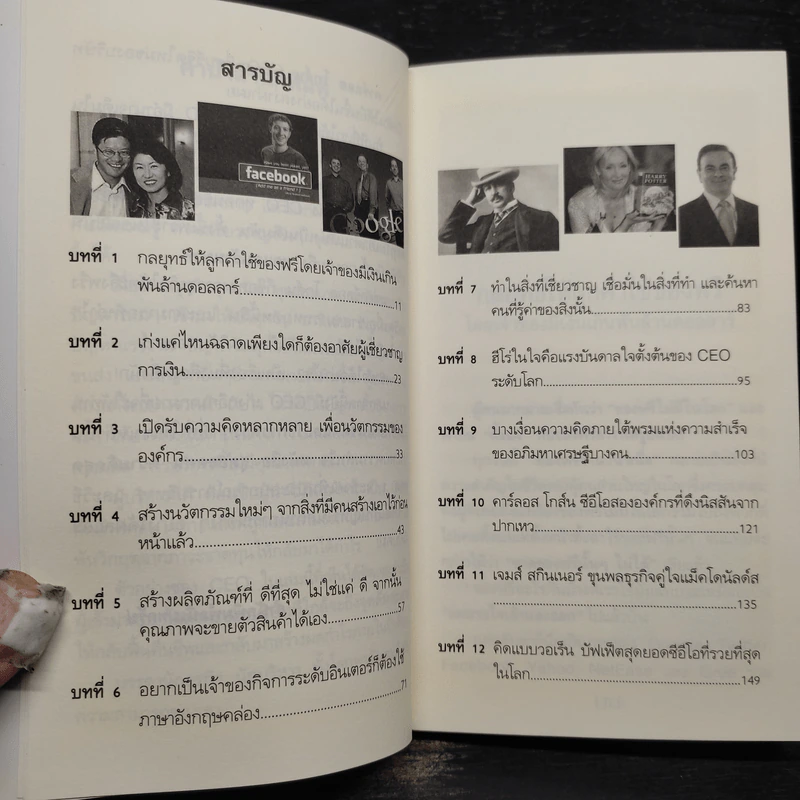 สารบัญ
facebook
Google
บทที่ 1 กลยุทธ์ให้ลูกค้าใช้ของฟรีโดยเจ้าของมีเงินเกิน
พันล้านดอลลาร์........................................11
บทที่ 2 เก่งแค่ไหนฉลาดเพียงใดก็ต้องอาศัยผู้เชี่ยวชาญ
การเงิน........................................23
บทที่ 3 เปิดรับความคิดหลากหลาย เพื่อนวัตกรรมของ
องค์กร........................................33
บทที่ 4 สร้างนวัตกรรมใหม่ๆ จากสิ่งที่มีคนสร้างเอาไว้ก่อน
หน้าแล้ว........................................43
บทที่ 5 สร้างผลิตภัณฑ์ที่ ดีที่สุด ไม่ใช่แค่ ดี จากนั้น
คุณภาพจะขายตัวสินค้าได้เอง........................................57
บทที่ 6 อยากเป็นเจ้าของกิจการระดับอินเตอร์ก็ต้องใช้
ภาษาอังกฤษคล่อง........................................71
HARRY
POTTER
บทที่ 7 ทำในสิ่งที่เชี่ยวชาญ เชื่อมั่นในสิ่งที่ทำ และค้นหา
คนที่รู้ค่าของสิ่งนั้น........................................83
บทที่ 8 ฮีโร่ในใจคือแรงบันดาลใจตั้งต้นของ CEO
ระดับโลก........................................95
บทที่ 9 บางเงื่อนความคิดภายใต้พรมแห่งความสำเร็จ
ของอภิมหาเศรษฐีบางคน........................................103
บทที่ 10 คาร์ลอส โกส์น ซีอีโอสององค์กรที่ดึงนิสสันจาก
ปากเหว........................................121
บทที่ 11 เจมส์ สกินเนอร์ ขุนพลธุรกิจคู่ใจแม็คโดนัลด์ส
........................................135
บทที่ 12 คิดแบบวอเร็น บัฟเฟ็ตสุดยอดซีอีโอที่รวยที่สุด
ในโลก........................................149